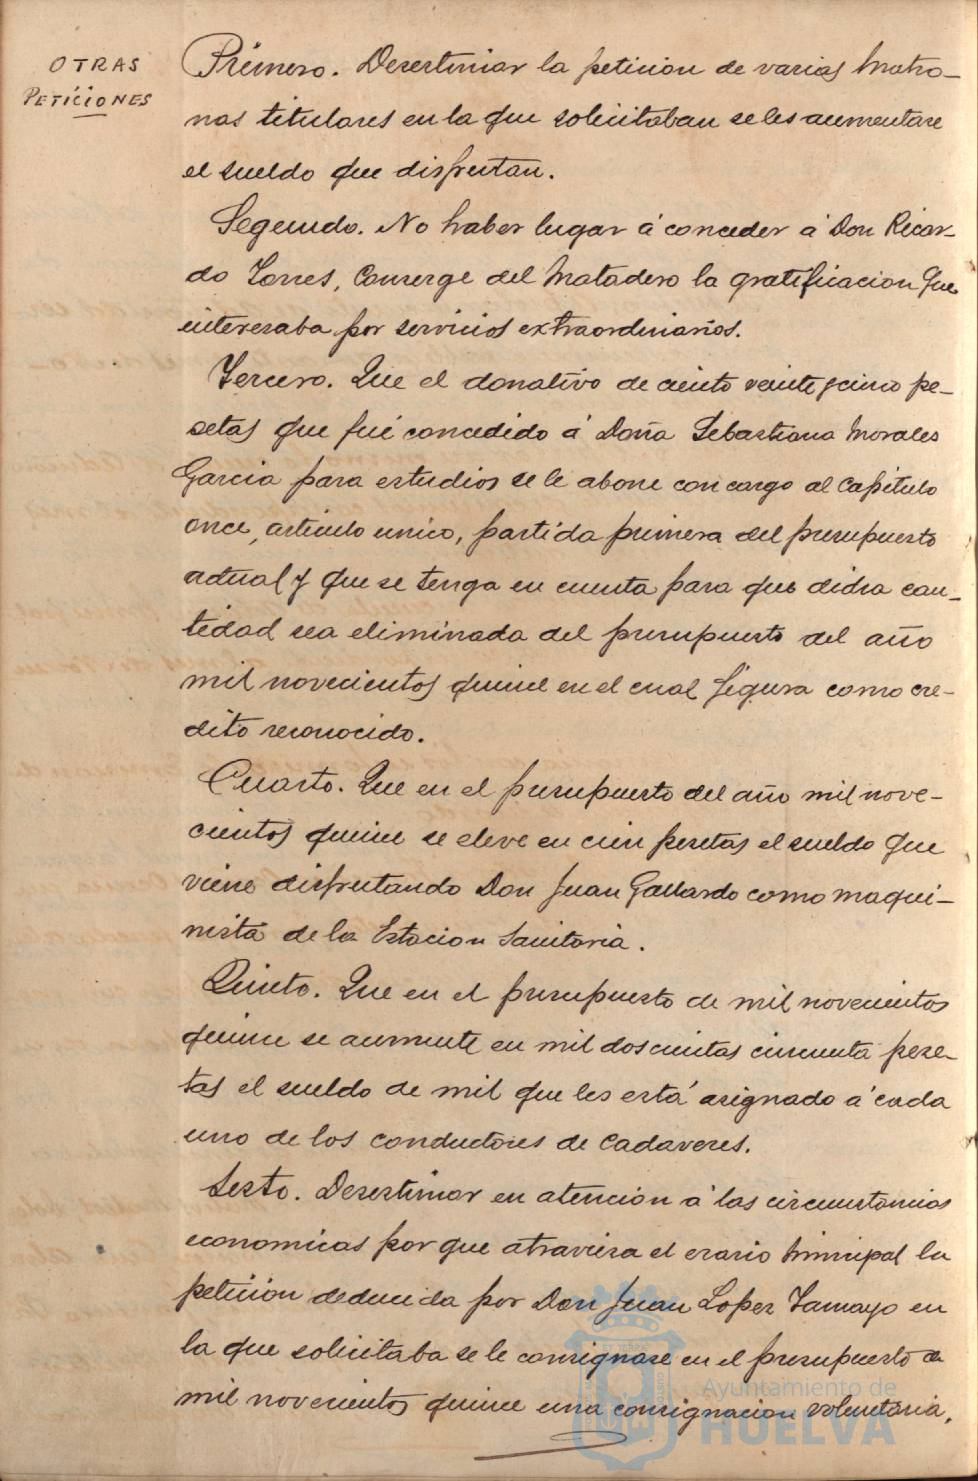 OTRAS
PETICIONES
Primero. Desestimar la peticion de varias Matro-
nas titulares en la que solicitaban se les aumentare
el sueldo que disfrutan.
Segundo. No haber lugar á conceder á Don Ricar-
do Torres, Conserge del Matadero la gratificacion que
interesaba por servicios extraordinarios.
Tercero. Que el donativo de ciento veinte y cinco pe-
setas que fué concedido á Doña Sebastiana Morales
Garcia para estudios se le abone con cargo al Capitulo
once, articulo unico, partida primera del presupuesto
actual y que se tenga en cuenta para que dicha can-
tidad sea eliminada del presupuesto del año
mil novecientos quince en el cual figura como cre-
dito reconocido.
Cuarto. Que en el presupuesto del año mil nove-
cientos quince se eleve en cien pesetas el sueldo que
viene disfrutando Don Juan Gallardo como maqui-
nista de la Estacion Sanitaria.
Quinto. Que en el presupuesto de mil novecientos
quince se aumente en mil doscientas cincuenta pese-
tas el sueldo de mil que les está asignado á cada
uno de los conductores de Cadaveres.
Sesto. Desestimar en atencion á las circunstancias
economicas por que atraviesa el erario Municipal la
peticion deducida por Don Juan Lopez Tamayo en
la que solicitaba se le consignase en el presupuesto de
mil novecientos quince una consignacion voluntaria.
Ayuntamiento de
HUELVA